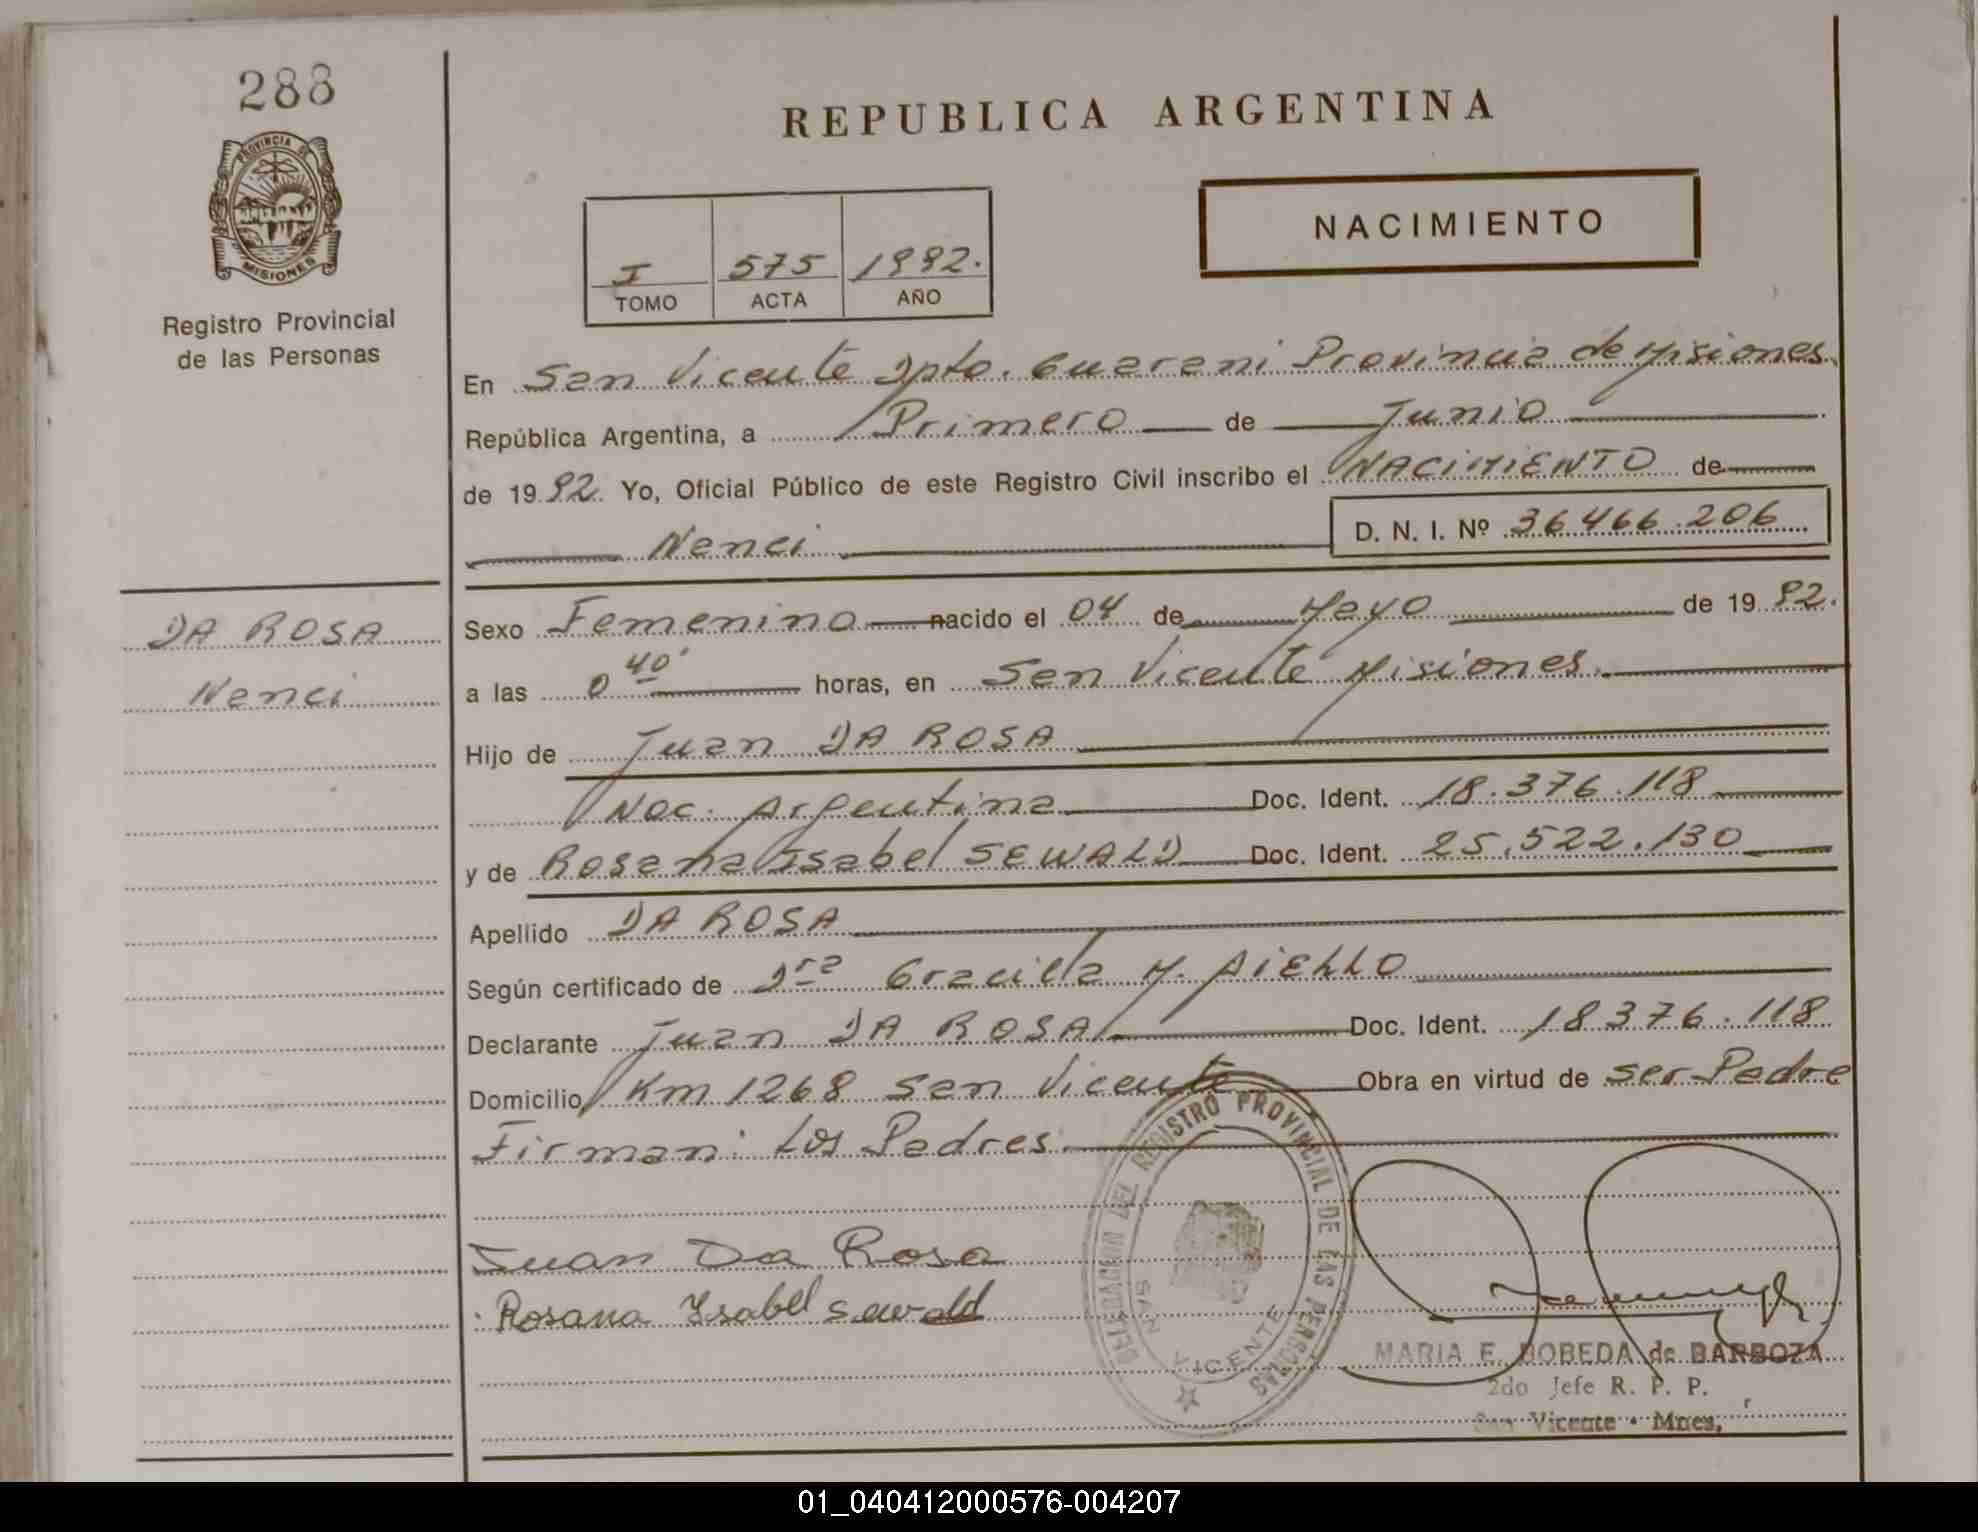 288
PROVINCIA DE
MISIONES
Registro Provincial
de las Personas
REPUBLICA ARGENTINA
NACIMIENTO
I 575 1992.
TOMO ACTA AÑO
En San Vicente Dpto. Guarani Provincia de Misiones.
República Argentina, a Primero de Junio
de 1992. Yo, Oficial Público de este Registro Civil inscribo el NACIMIENTO de
Nenci D. N. I. Nº 36466.206
DA ROSA
Nenci
Sexo Femenino nacido el 04 de Mayo de 1992.
a las 0 40' horas, en San Vicente Misiones.
Hijo de Juan DA ROSA
Nac. Argentina Doc. Ident. 18.376.118
y de Rosana Isabel SEWALD Doc. Ident. 25.522.130
Apellido DA ROSA
Según certificado de Dra Graciela M. AIELLO
Declarante Juan DA ROSA Doc. Ident. 18376.118
Domicilio Km 1268 San Vicente Obra en virtud de ser Padre
Firman: Los Padres.
Juan Da Rosa
Rosana Ysabel Sewald
DELEGACION DEL REGISTRO PROVINCIAL DE LAS PERSONAS
SAN VICENTE
MARIA E. BOBEDA de BARBOZA
2do Jefe R. P. P.
San Vicente - Mnes,
01_040412000576-004207